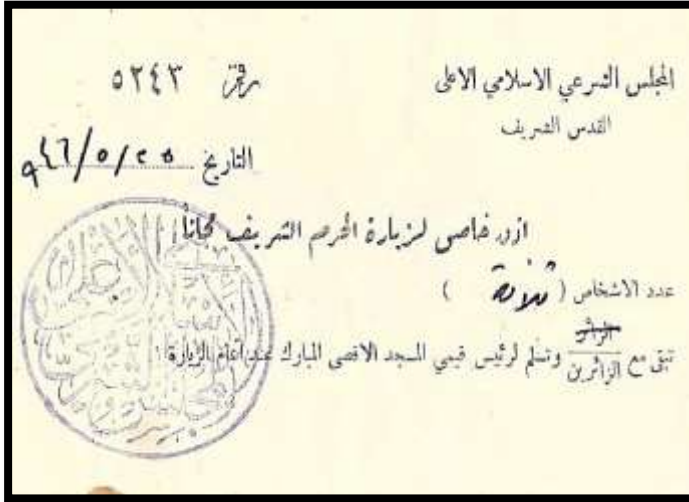 المجلس الشرعي الاسلامي الاعلى
القدس الشريف
رقم ٥٢٤٣
التاريخ ٢٥/٥/٩٤٦
اذن خاص لزيارة الحرم الشريف مجاناً
عدد الاشخاص ( ثلاثة )
تبقى مع الزائر الزائرين وتسلم لرئيس قيمي المسجد الاقصى المبارك عند اتمام الزيارة